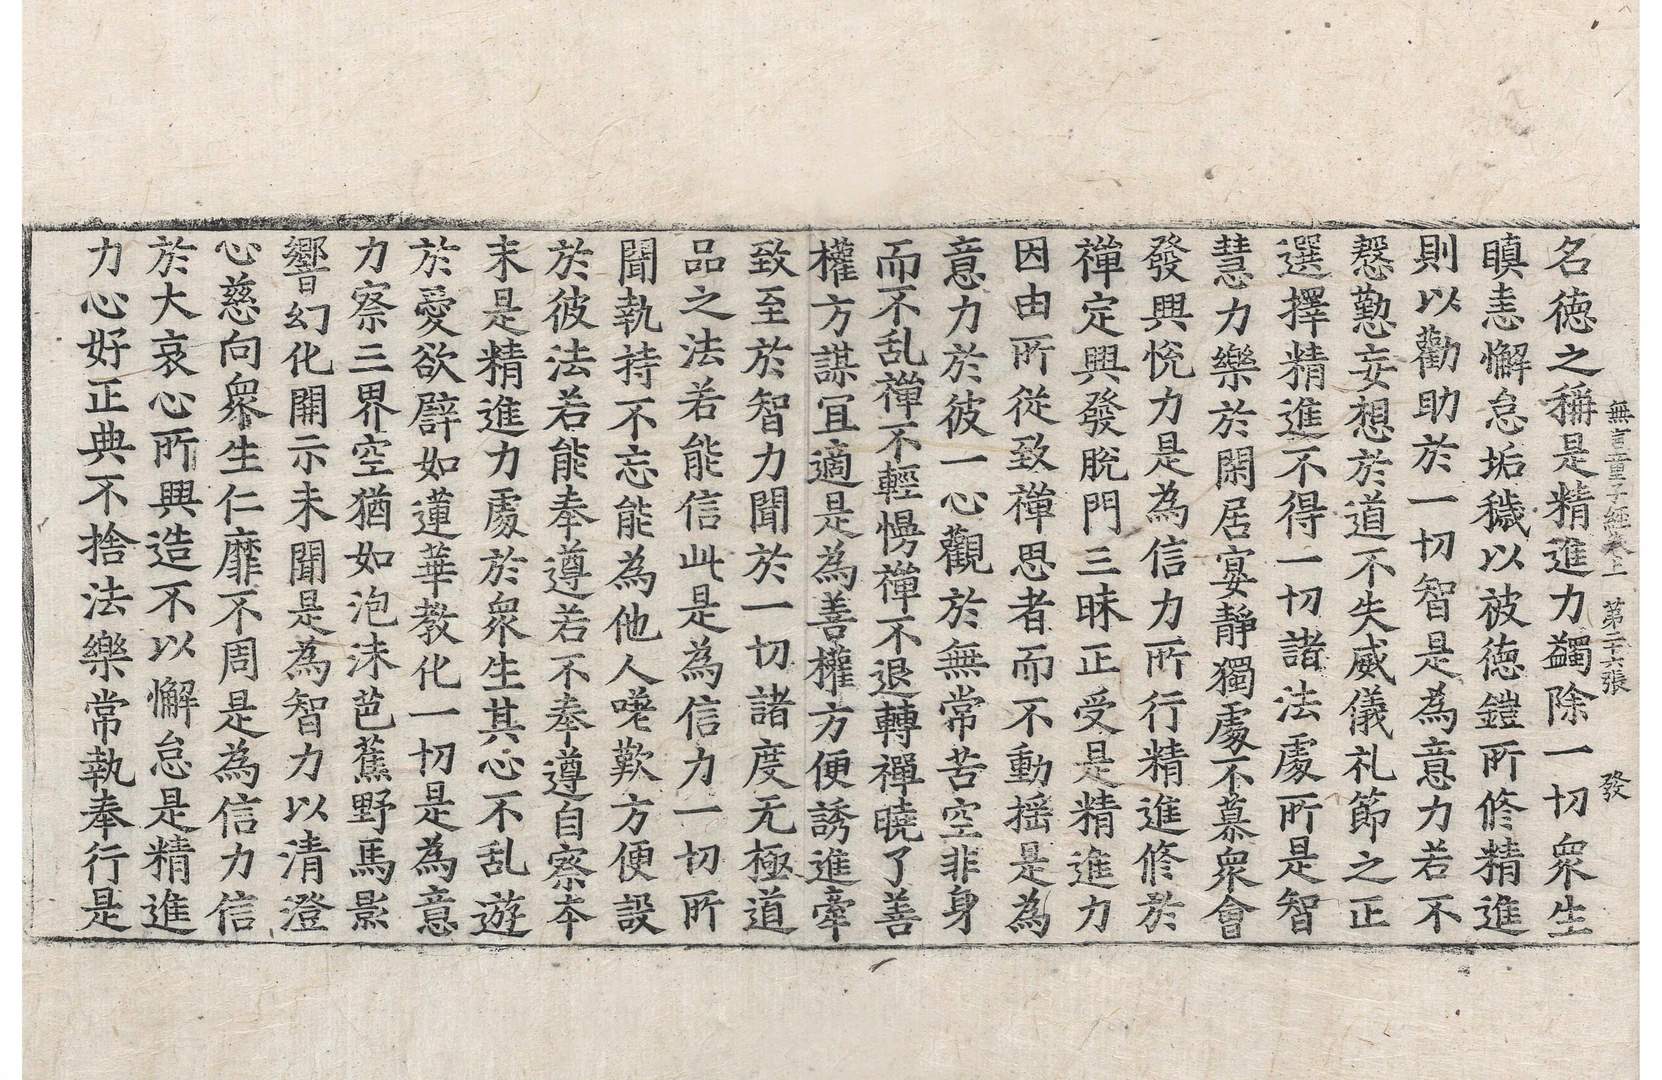 無言童子經卷上　第二十六張　發
名德之稱是精進力蠲除一切衆生
瞋恚懈怠垢穢以被德鎧所修精進
則以勸助於一切智是為意力若不
慇懃妄想於道不失威儀礼節之正
選擇精進不得一切諸法處所是智
慧力樂於閑居宴靜獨處不慕衆會
發興悅力是為信力所行精進修於
禪定興發脫門三昧正受是精進力
因由所從致禪思者而不動搖是為
意力於彼一心觀於無常苦空非身
而不乱禪不輕慢禪不退轉禪曉了善
權方謀宜適是為善權方便誘進牽
致至於智力聞於一切諸度无極道
品之法若能信此是為信力一切所
聞執持不忘能為他人咾歎方便設
於彼法若能奉遵若不奉遵自察本
末是精進力處於衆生其心不乱遊
於愛欲譬如蓮華教化一切是為意
力察三界空猶如泡沫芭蕉野馬影
響幻化開示未聞是為智力以清澄
心慈向衆生仁靡不周是為信力信
於大哀心所興造不以懈怠是精進
力心好正典不捨法樂常執奉行是